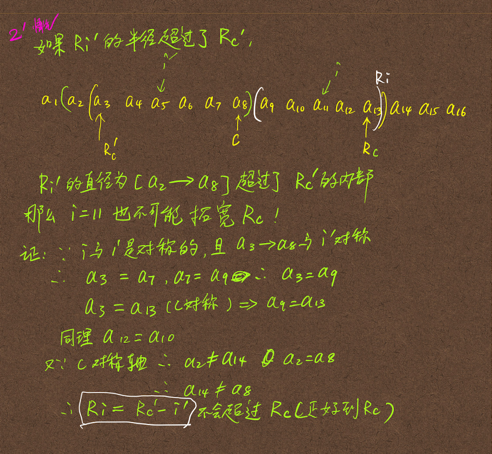 2' 情况
如果 Ri' 的半径超过了 Rc',
i'
i
Ri
a1 (a2 (a3 a4 a5 a6 a7 a8) (a9 a10 a11 a12 a13)) a14 a15 a16
Rc'
C
Rc
Ri' 的直径为 [a2 → a8] 超过了 Rc' 的内部
那么 i=11 也不可能 拓宽 Rc !
证: ∵ i 与 i' 是对称的, 且 a3 → a8 与 i' 对称
∴ a3 = a7, a7 = a9 ∴ a3 = a9
a3 = a13 (C对称) => a9 = a13
同理 a12 = a10
又∵ C 对称轴 ∴ a2 ≠ a14 a2 = a8
∴ a14 ≠ a8
∴ Ri = Rc' - i' 不会超过 Rc (正好到 Rc)